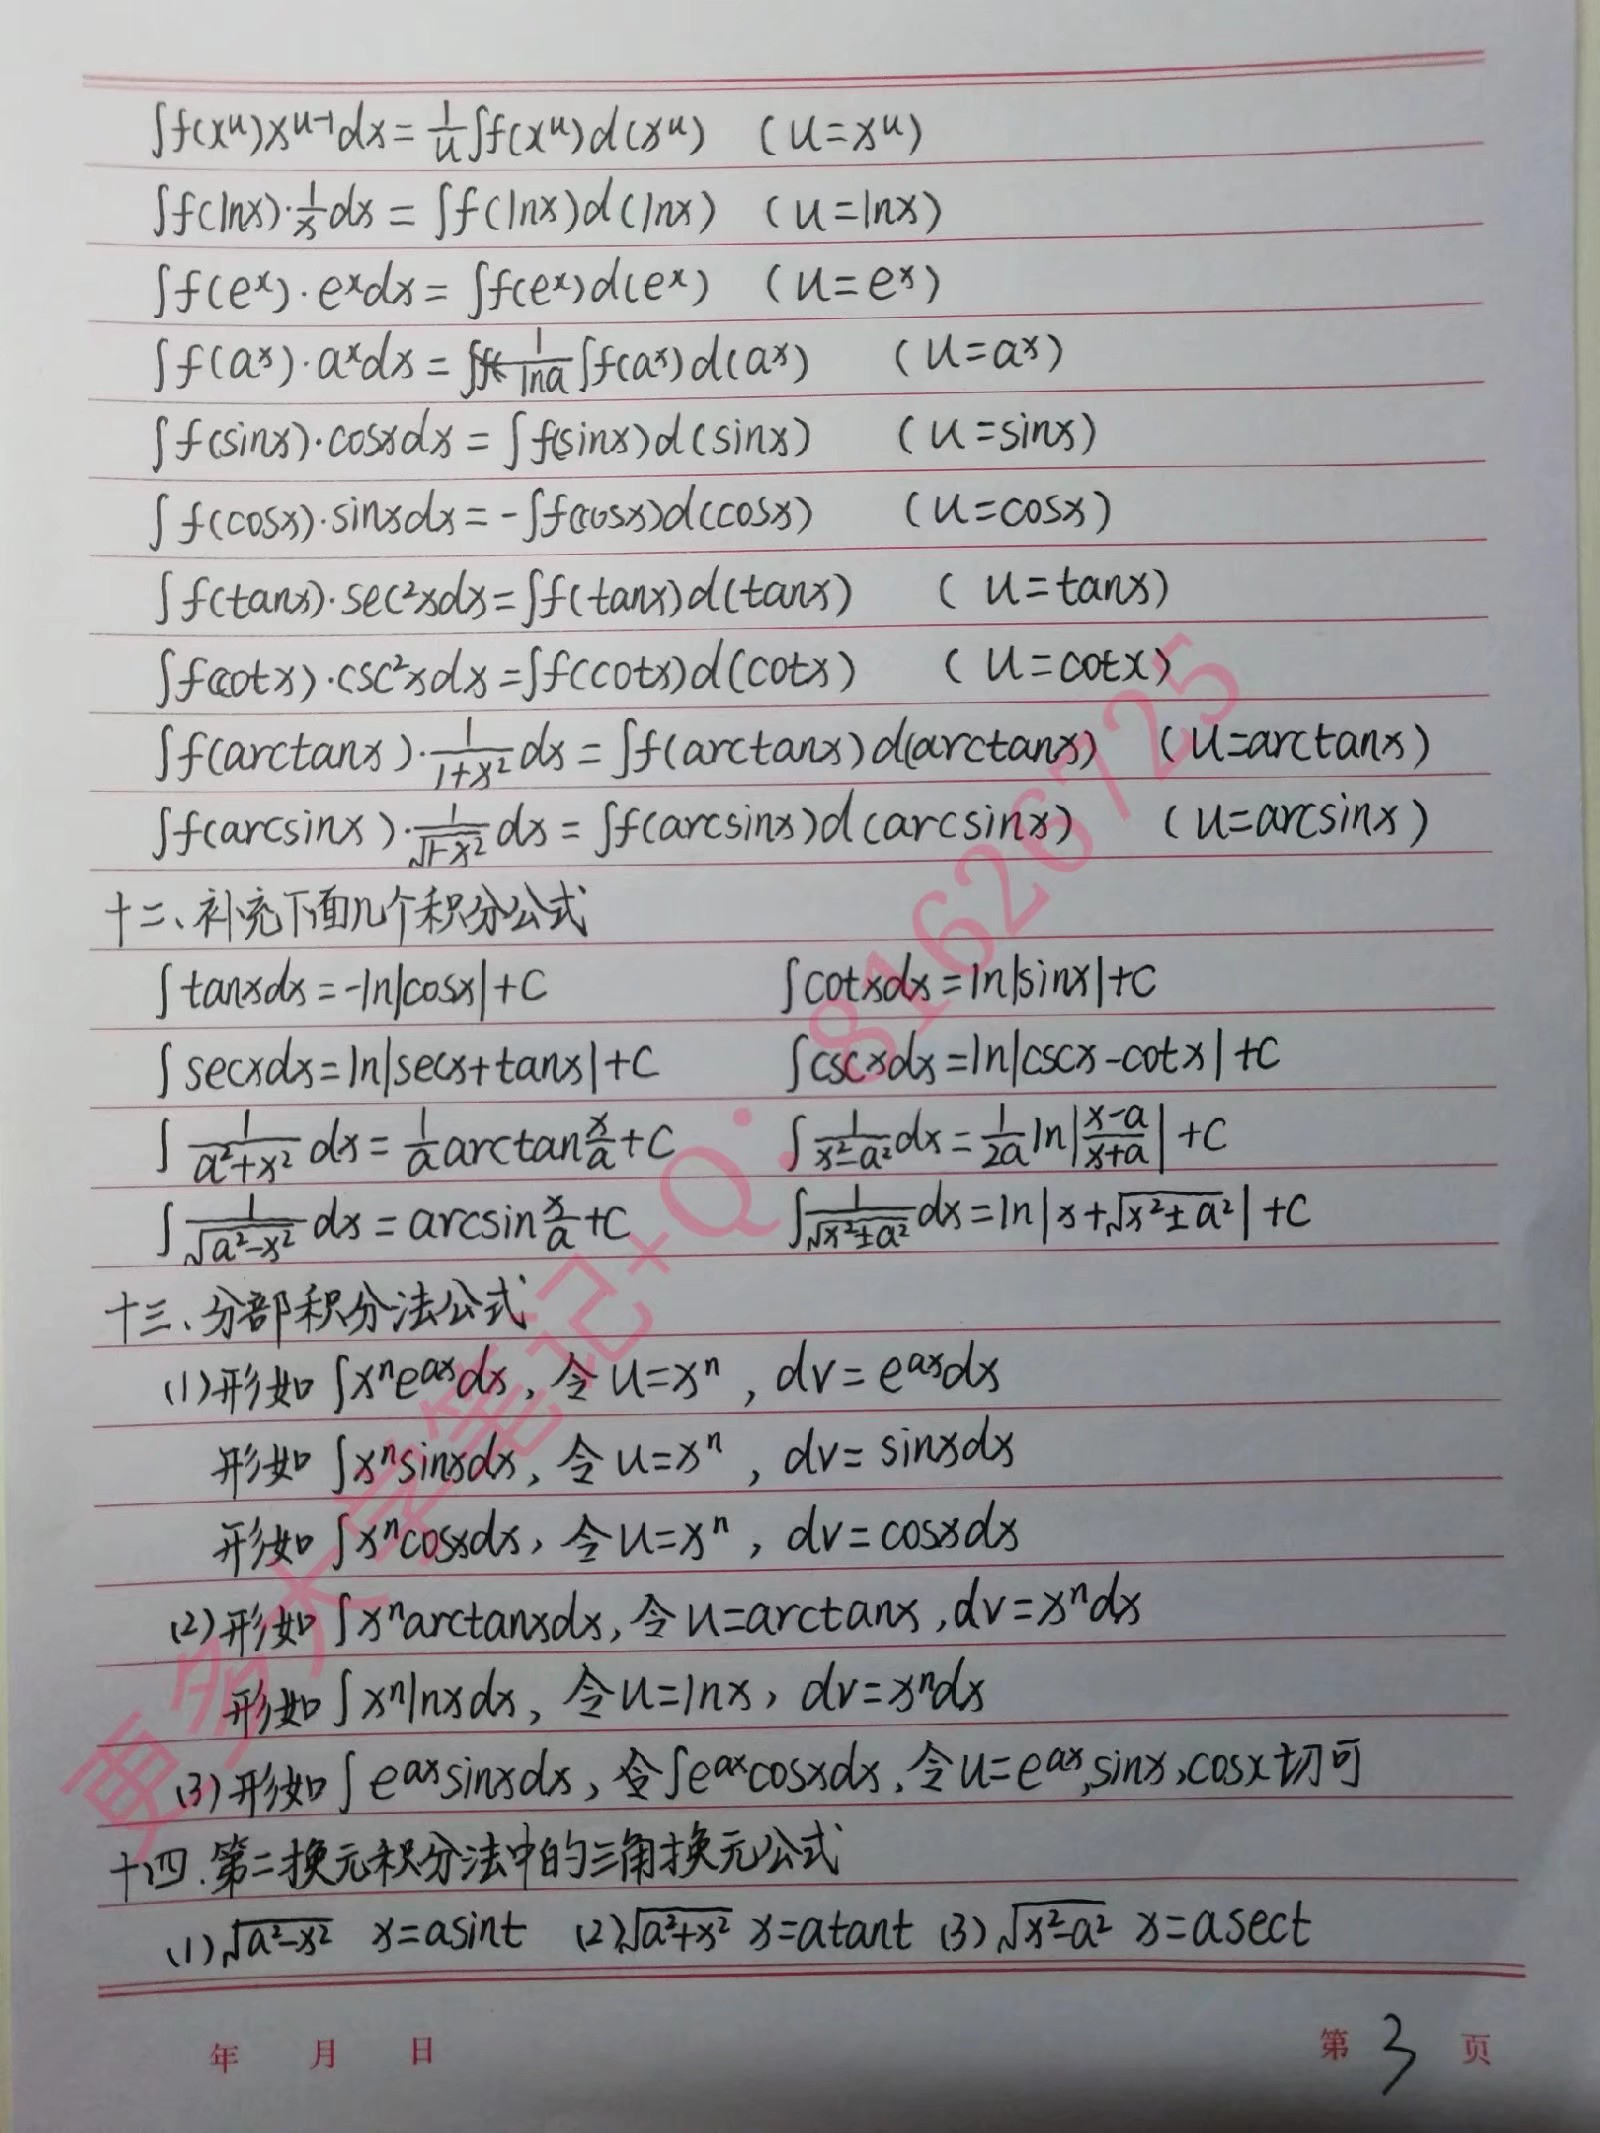 ∫f(xᵘ)xᵘ⁻¹dx = 1/u ∫f(xᵘ)d(xᵘ) (u=xᵘ)
∫f(lnx)·1/x dx = ∫f(lnx)d(lnx) (u=lnx)
∫f(eˣ)·eˣdx = ∫f(eˣ)d(eˣ) (u=eˣ)
∫f(aˣ)·aˣdx = 1/lna ∫f(aˣ)d(aˣ) (u=aˣ)
∫f(sinx)·cosxdx = ∫f(sinx)d(sinx) (u=sinx)
∫f(cosx)·sinxdx = -∫f(cosx)d(cosx) (u=cosx)
∫f(tanx)·sec²xdx = ∫f(tanx)d(tanx) (u=tanx)
∫f(cotx)·csc²xdx = ∫f(cotx)d(cotx) (u=cotx)
∫f(arctanx)·1/(1+x²) dx = ∫f(arctanx)d(arctanx) (u=arctanx)
∫f(arcsinx)·1/√(1-x²) dx = ∫f(arcsinx)d(arcsinx) (u=arcsinx)
十二、补充下面几个积分公式
∫tanxdx = -ln|cosx|+C ∫cotxdx = ln|sinx|+C
∫secxdx = ln|secx+tanx|+C ∫cscxdx = ln|cscx-cotx|+C
∫1/(a²+x²) dx = 1/a arctan x/a +C ∫1/(x²-a²) dx = 1/2a ln|(x-a)/(x+a)| +C
∫1/√(a²-x²) dx = arcsin x/a +C ∫1/√(x²±a²) dx = ln|x+√(x²±a²)| +C
十三、分部积分法公式
(1)形如∫xⁿeᵃˣdx, 令u=xⁿ, dv=eᵃˣdx
形如∫xⁿsinxdx, 令u=xⁿ, dv=sinxdx
形如∫xⁿcosxdx, 令u=xⁿ, dv=cosxdx
(2)形如∫xⁿarctanxdx, 令u=arctanx, dv=xⁿdx
形如∫xⁿlnxdx, 令u=lnx, dv=xⁿdx
(3)形如∫eᵃˣsinxdx, 令∫eᵃˣcosxdx, 令u=eᵃˣ, sinx, cosx切可
十四.第二换元积分法中的三角换元公式
(1)√(a²-x²) x=asint (2)√(a²+x²) x=atant (3)√(x²-a²) x=asect
年 月 日 第 3 页
更多大学笔记+Q:81626725